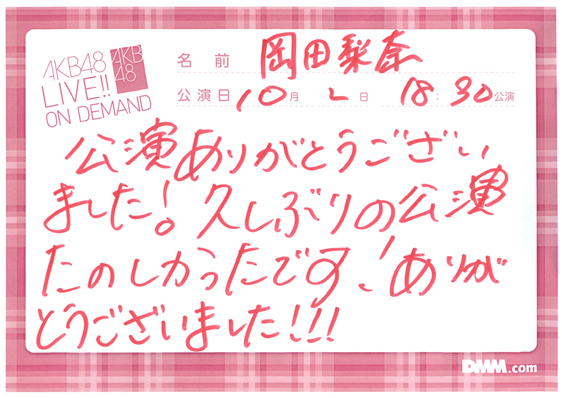 AKB48
LIVE!!
ON DEMAND
AKB
48
名前 岡田梨奈
公演日 10月2日 18:30公演
公演ありがとうござい
ました!久しぶりの公演
たのしかったです!ありが
とうございました!!!
DMM.com